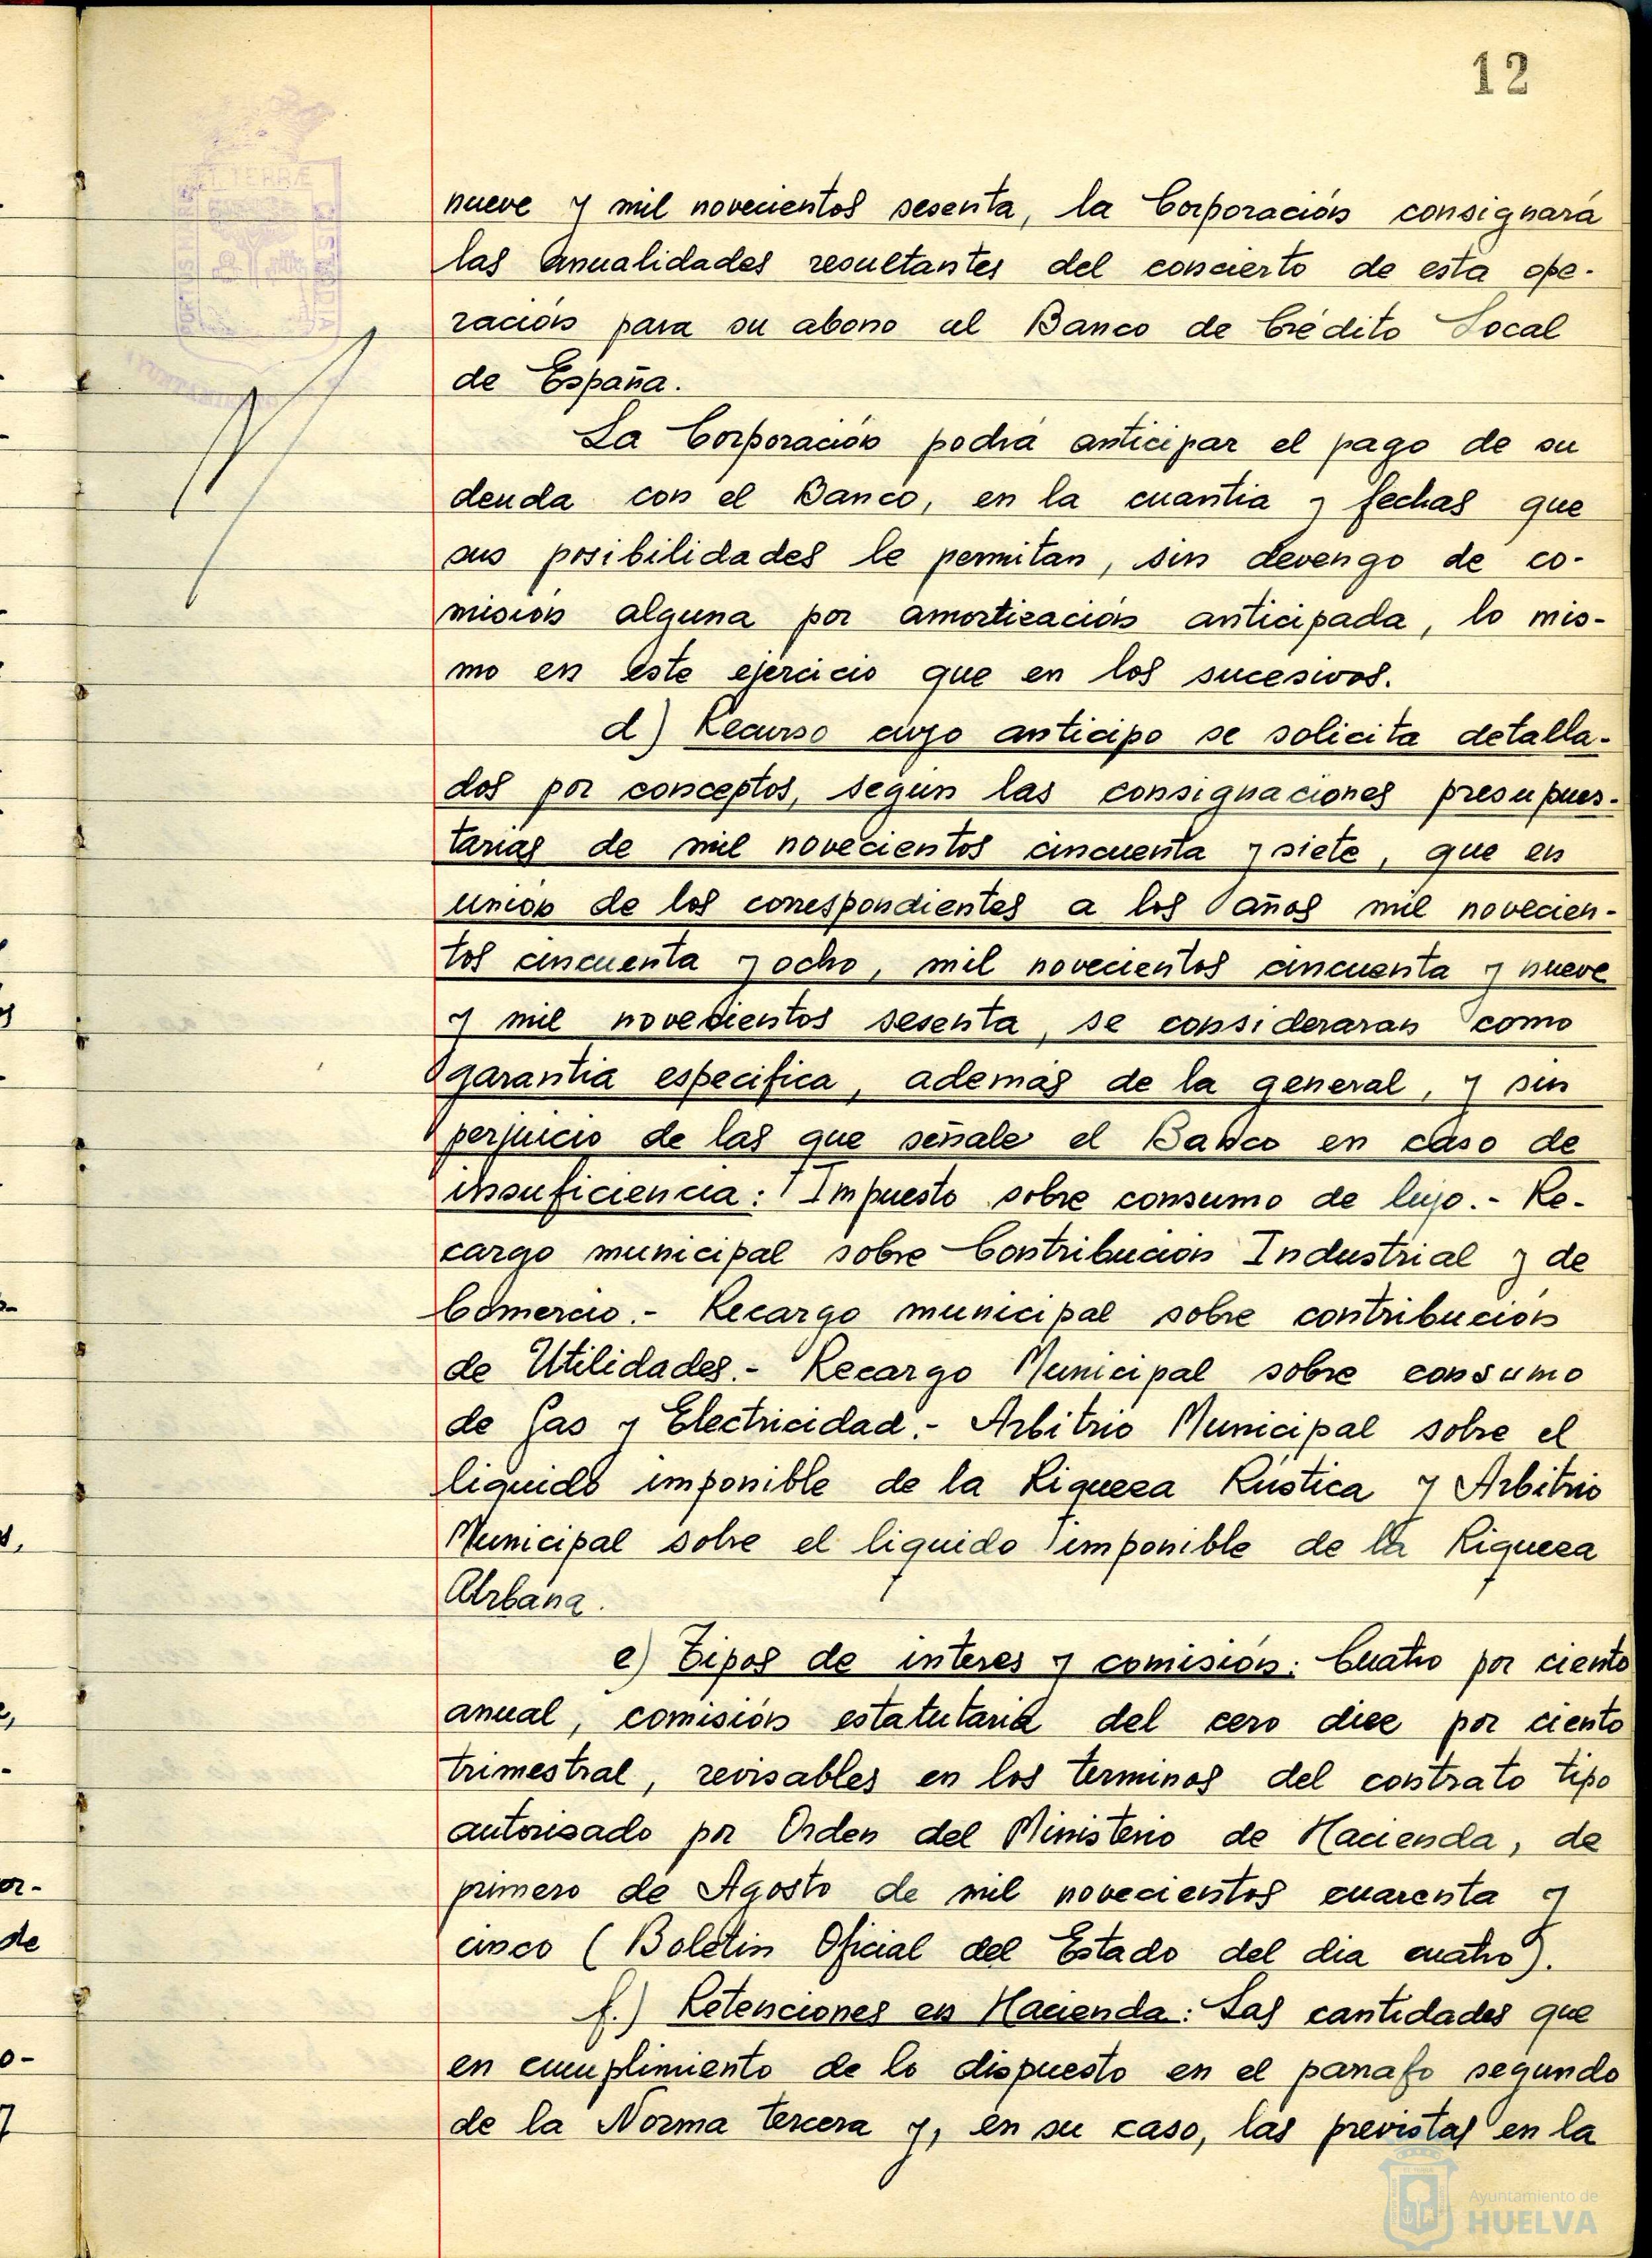 12
nueve y mil novecientos sesenta, la Corporación consignará
las anualidades resultantes del concierto de esta ope-
ración para su abono al Banco de Crédito Local
de España.
La Corporación podrá anticipar el pago de su
deuda con el Banco, en la cuantia y fechas que
sus posibilidades le permitan, sin devengo de co-
misión alguna por amortización anticipada, lo mis-
mo en este ejercicio que en los sucesivos.
d) Recurso cuyo anticipo se solicita detalla-
dos por conceptos, según las consignaciones presupues-
tarias de mil novecientos cincuenta y siete, que en
unión de los correspondientes a los años mil novecien-
tos cincuenta y ocho, mil novecientos cincuenta y nueve
y mil novecientos sesenta, se consideraran como
garantia especifica, además de la general, y sin
perjuicio de las que señale el Banco en caso de
insuficiencia: Impuesto sobre consumo de lujo.- Re-
cargo municipal sobre Contribución Industrial y de
Comercio.- Recargo municipal sobre contribución
de Utilidades.- Recargo Municipal sobre consumo
de Gas y Electricidad.- Arbitrio Municipal sobre el
liquido imponible de la Riqueza Rústica y Arbitrio
Municipal sobre el liquido imponible de la Riqueza
Urbana.
e) Tipos de interes y comisión: Cuatro por ciento
anual, comisión estatutaria del cero diez por ciento
trimestral, revisables en los terminos del contrato tipo
autorizado por Orden del Ministerio de Hacienda, de
primero de Agosto de mil novecientos cuarenta y
cinco (Boletin Oficial del Estado del dia cuatro).
f.) Retenciones en Hacienda: Las cantidades que
en cumplimiento de lo dispuesto en el parrafo segundo
de la Norma tercera y, en su caso, las previstas en la
Ayuntamiento de
HUELVA